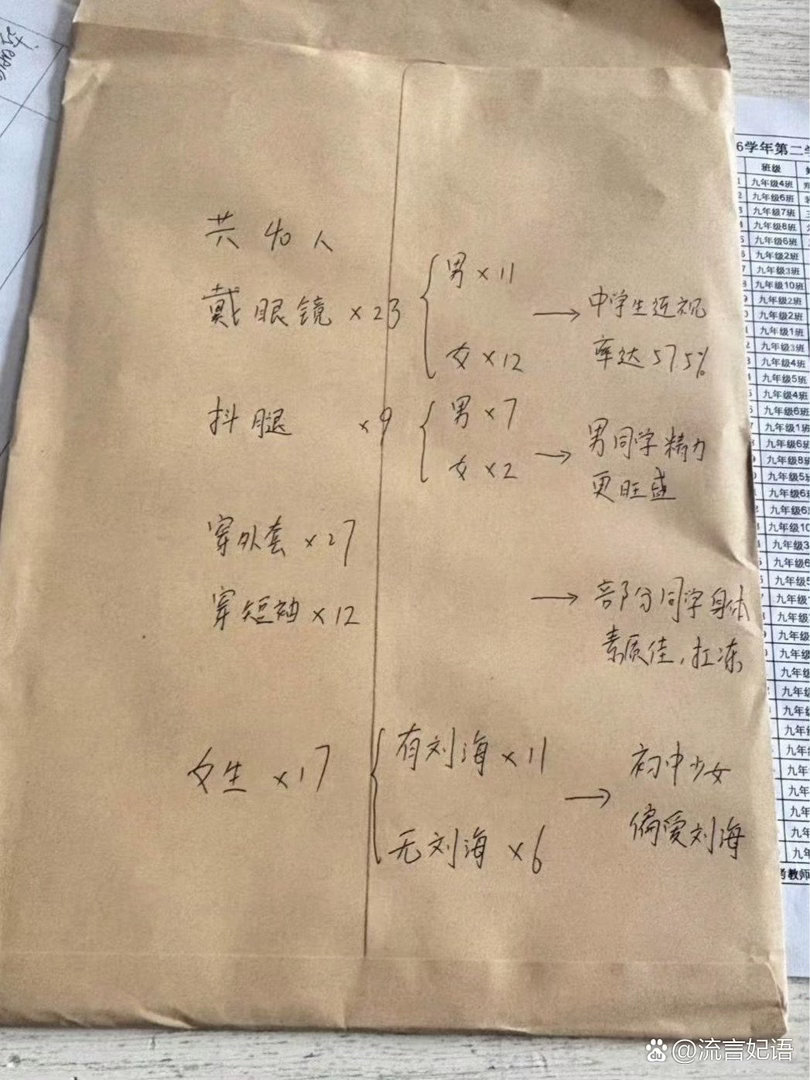 共 40 人
戴眼镜 ×23
男 ×11
女 ×12
→ 中学生近视
率达57.5%
抖腿 ×9
男 ×7
女 ×2
→ 男同学精力
更旺盛
穿外套 ×27
穿短袖 ×12
→ 部分同学身体
素质佳,扛冻
女生 ×17
有刘海 ×11
无刘海 ×6
→ 初中少女
偏爱刘海
6学年第二学
班级
九年级4班
九年级6班
九年级7班
九年级8班
九年级6班
九年级2班
九年级3班
九年级10班
九年级2班
九年级2班
九年级1班
九年级3班
九年级4班
九年级5班
九年级4班
九年级6班
九年级1班
九年级6班
九年级8班
九年级5班
九年级6班
九年级6
九年级10
九年级3
九年级
九年级6
九年级5
九年级
九年级
九年级
九年级
九年级
九年级
九年级
九年级
九年级
九年
九年
考教师
@流言妃语